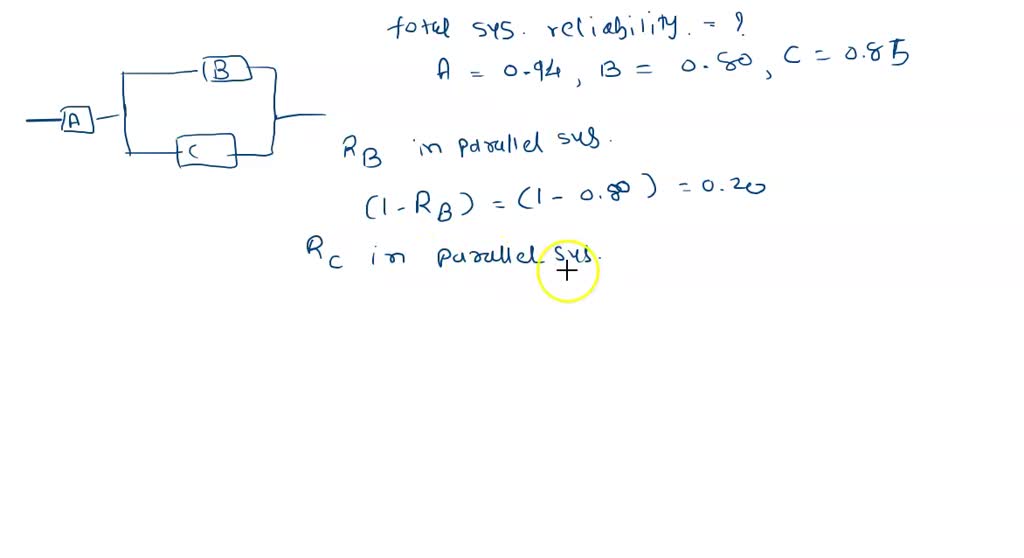 total sys. reliability. = ?
A = 0.94, B = 0.80, C = 0.85
B
A
C
RB in parallel sys.
(1 - RB) = (1 - 0.80) = 0.20
RC in parallel sys.